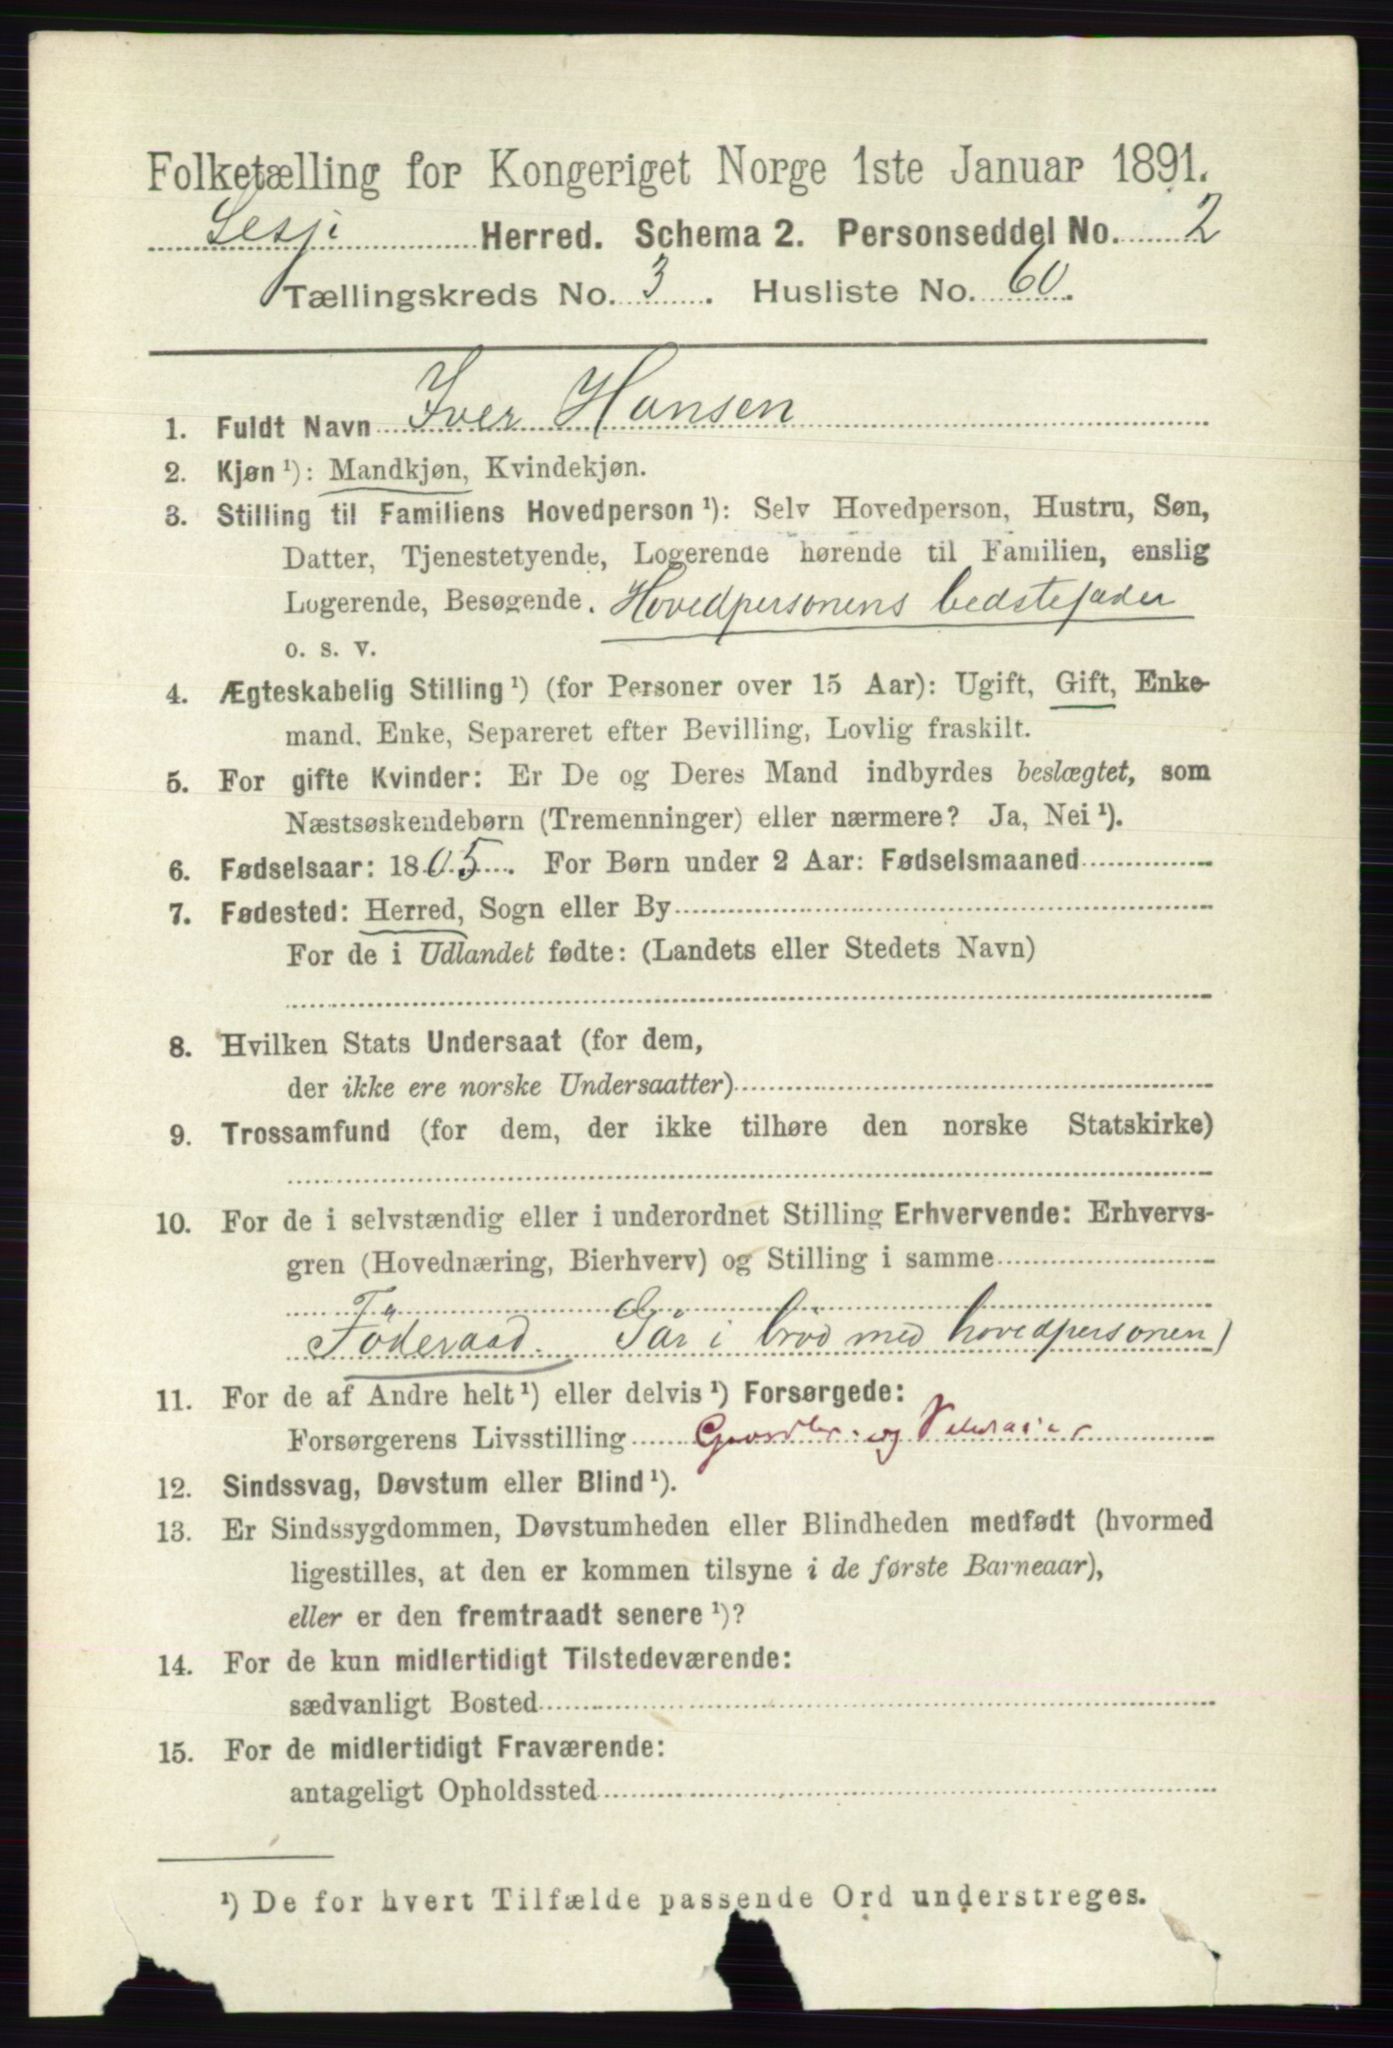 Folketælling for Kongeriget Norge 1ste Januar 1891.
Lesje Herred. Schema 2. Personseddel No. 2
Tællingskreds No. 3. Husliste No. 60.
1. Fuldt Navn Iver Hansen
2. Kjøn ¹): Mandkjøn, Kvindekjøn.
3. Stilling til Familiens Hovedperson ¹): Selv Hovedperson, Hustru, Søn,
Datter, Tjenestetyende, Logerende hørende til Familien, enslig
Logerende, Besøgende. Hovedpersonens bedstefader
o. s. v.
4. Ægteskabelig Stilling ¹) (for Personer over 15 Aar): Ugift, Gift, Enke-
mand, Enke, Separeret efter Bevilling, Lovlig fraskilt.
5. For gifte Kvinder: Er De og Deres Mand indbyrdes beslægtet, som
Næstsøskendebørn (Tremenninger) eller nærmere? Ja, Nei ¹).
6. Fødselsaar: 1805. For Børn under 2 Aar: Fødselsmaaned
7. Fødested: Herred, Sogn eller By
For de i Udlandet fødte: (Landets eller Stedets Navn)
8. Hvilken Stats Undersaat (for dem,
der ikke ere norske Undersaatter)
9. Trossamfund (for dem, der ikke tilhøre den norske Statskirke)
10. For de i selvstændig eller i underordnet Stilling Erhvervende: Erhvervs-
gren (Hovednæring, Bierhverv) og Stilling i samme
Föderaad. Går i bröd med hovedpersonen)
11. For de af Andre helt ¹) eller delvis ¹) Forsørgede:
Forsørgerens Livsstilling og
12. Sindssvag, Døvstum eller Blind ¹).
13. Er Sindssygdommen, Døvstumheden eller Blindheden medfødt (hvormed
ligestilles, at den er kommen tilsyne i de første Barneaar),
eller er den fremtraadt senere ¹)?
14. For de kun midlertidigt Tilstedeværende:
sædvanligt Bosted
15. For de midlertidigt Fraværende:
antageligt Opholdssted
¹) De for hvert Tilfælde passende Ord understreges.